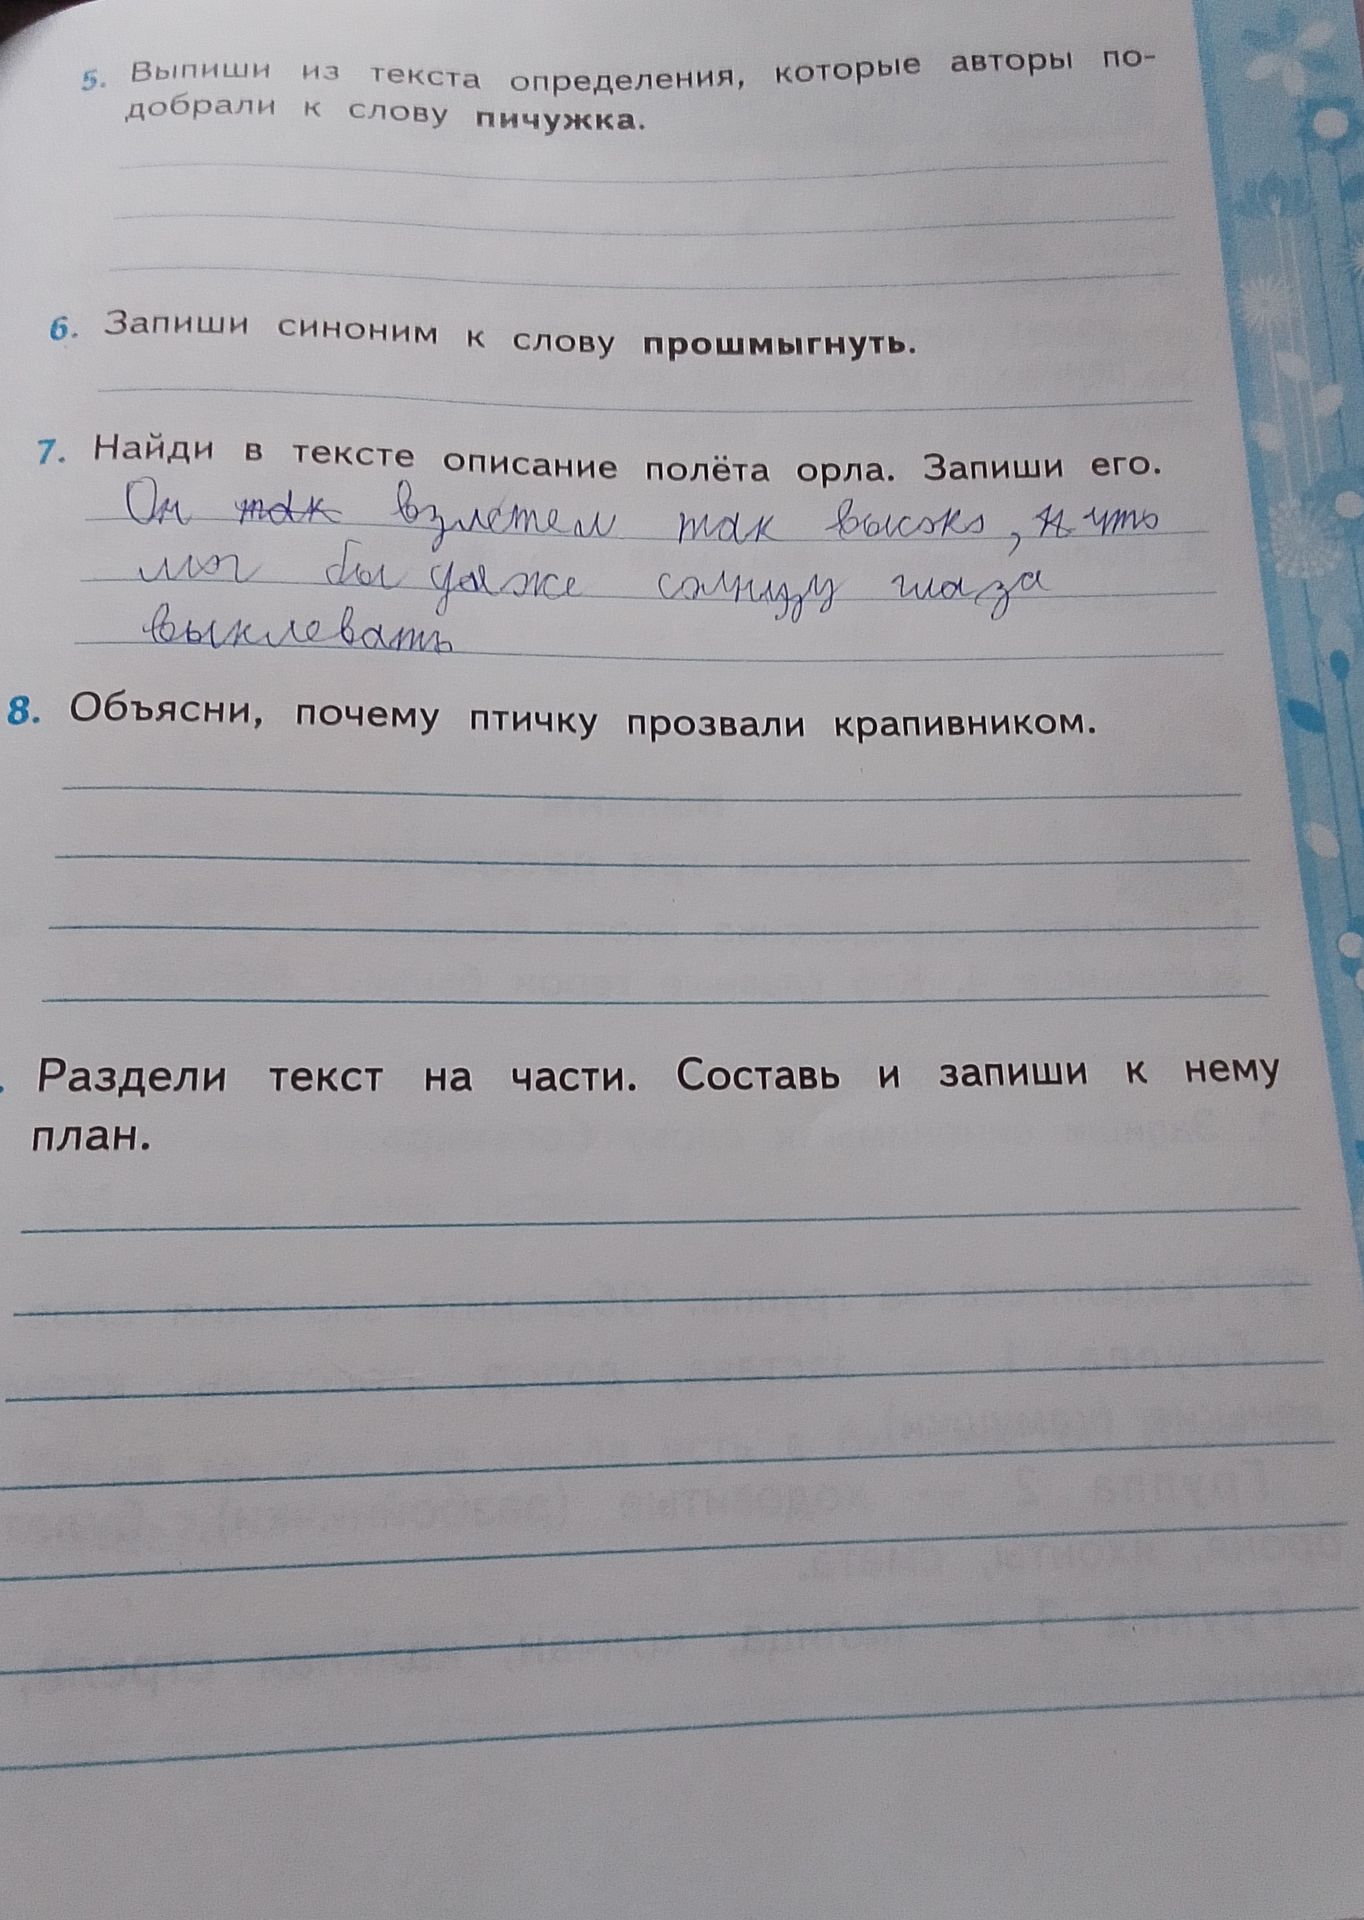 5. Выпиши из текста определения, которые авторы по-
добрали к слову пичужка.
6. Запиши синоним к слову прошмыгнуть.
7. Найди в тексте описание полёта орла. Запиши его.
Он так взлетел так высоко, что
мог бы даже солнцу глаза
выклевать
8. Объясни, почему птичку прозвали крапивником.
. Раздели текст на части. Составь и запиши к нему
план.